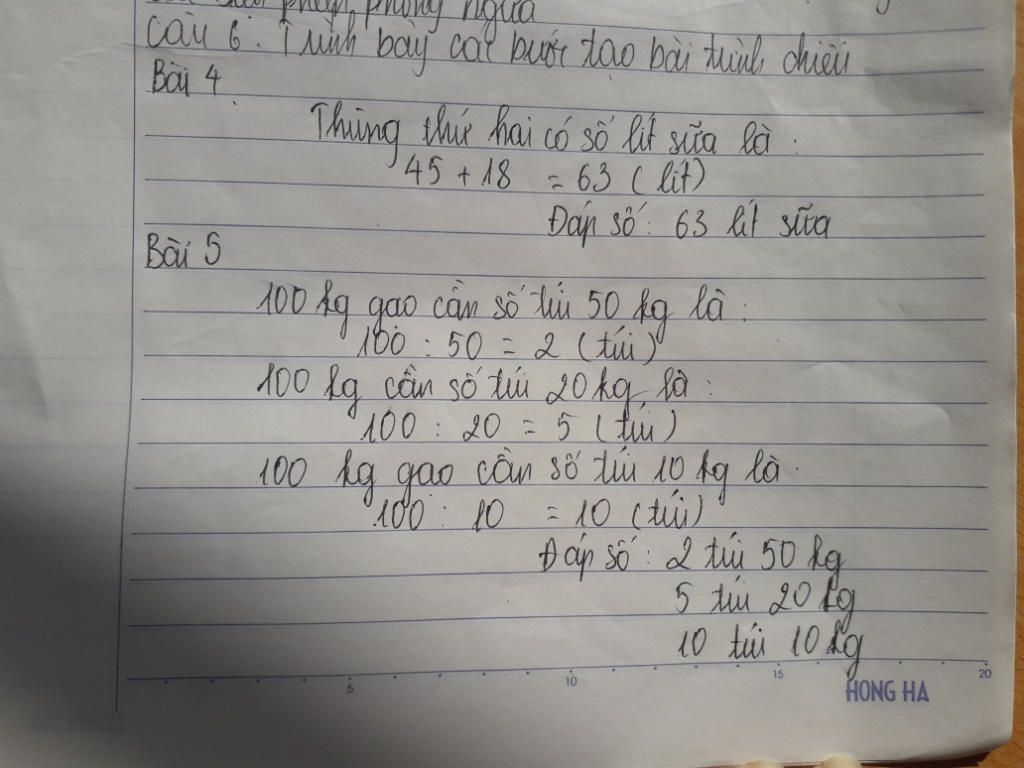 phòng ngừa
Câu 6. Trình bày các bước tạo bài trình chiếu
Bài 4
Thùng thứ hai có số lít sữa là :
45 + 18 = 63 ( lít)
Đáp số : 63 lít sữa
Bài 5
100 kg gao cần số túi 50 kg là :
100 : 50 = 2 (túi)
100 kg cần số túi 20 kg là :
100 : 20 = 5 (túi)
100 kg gao cần số túi 10 kg là :
100 : 10 = 10 (túi)
Đáp số : 2 túi 50 kg
5 túi 20 kg
10 túi 10 kg
5 10 15 20
HONG HA